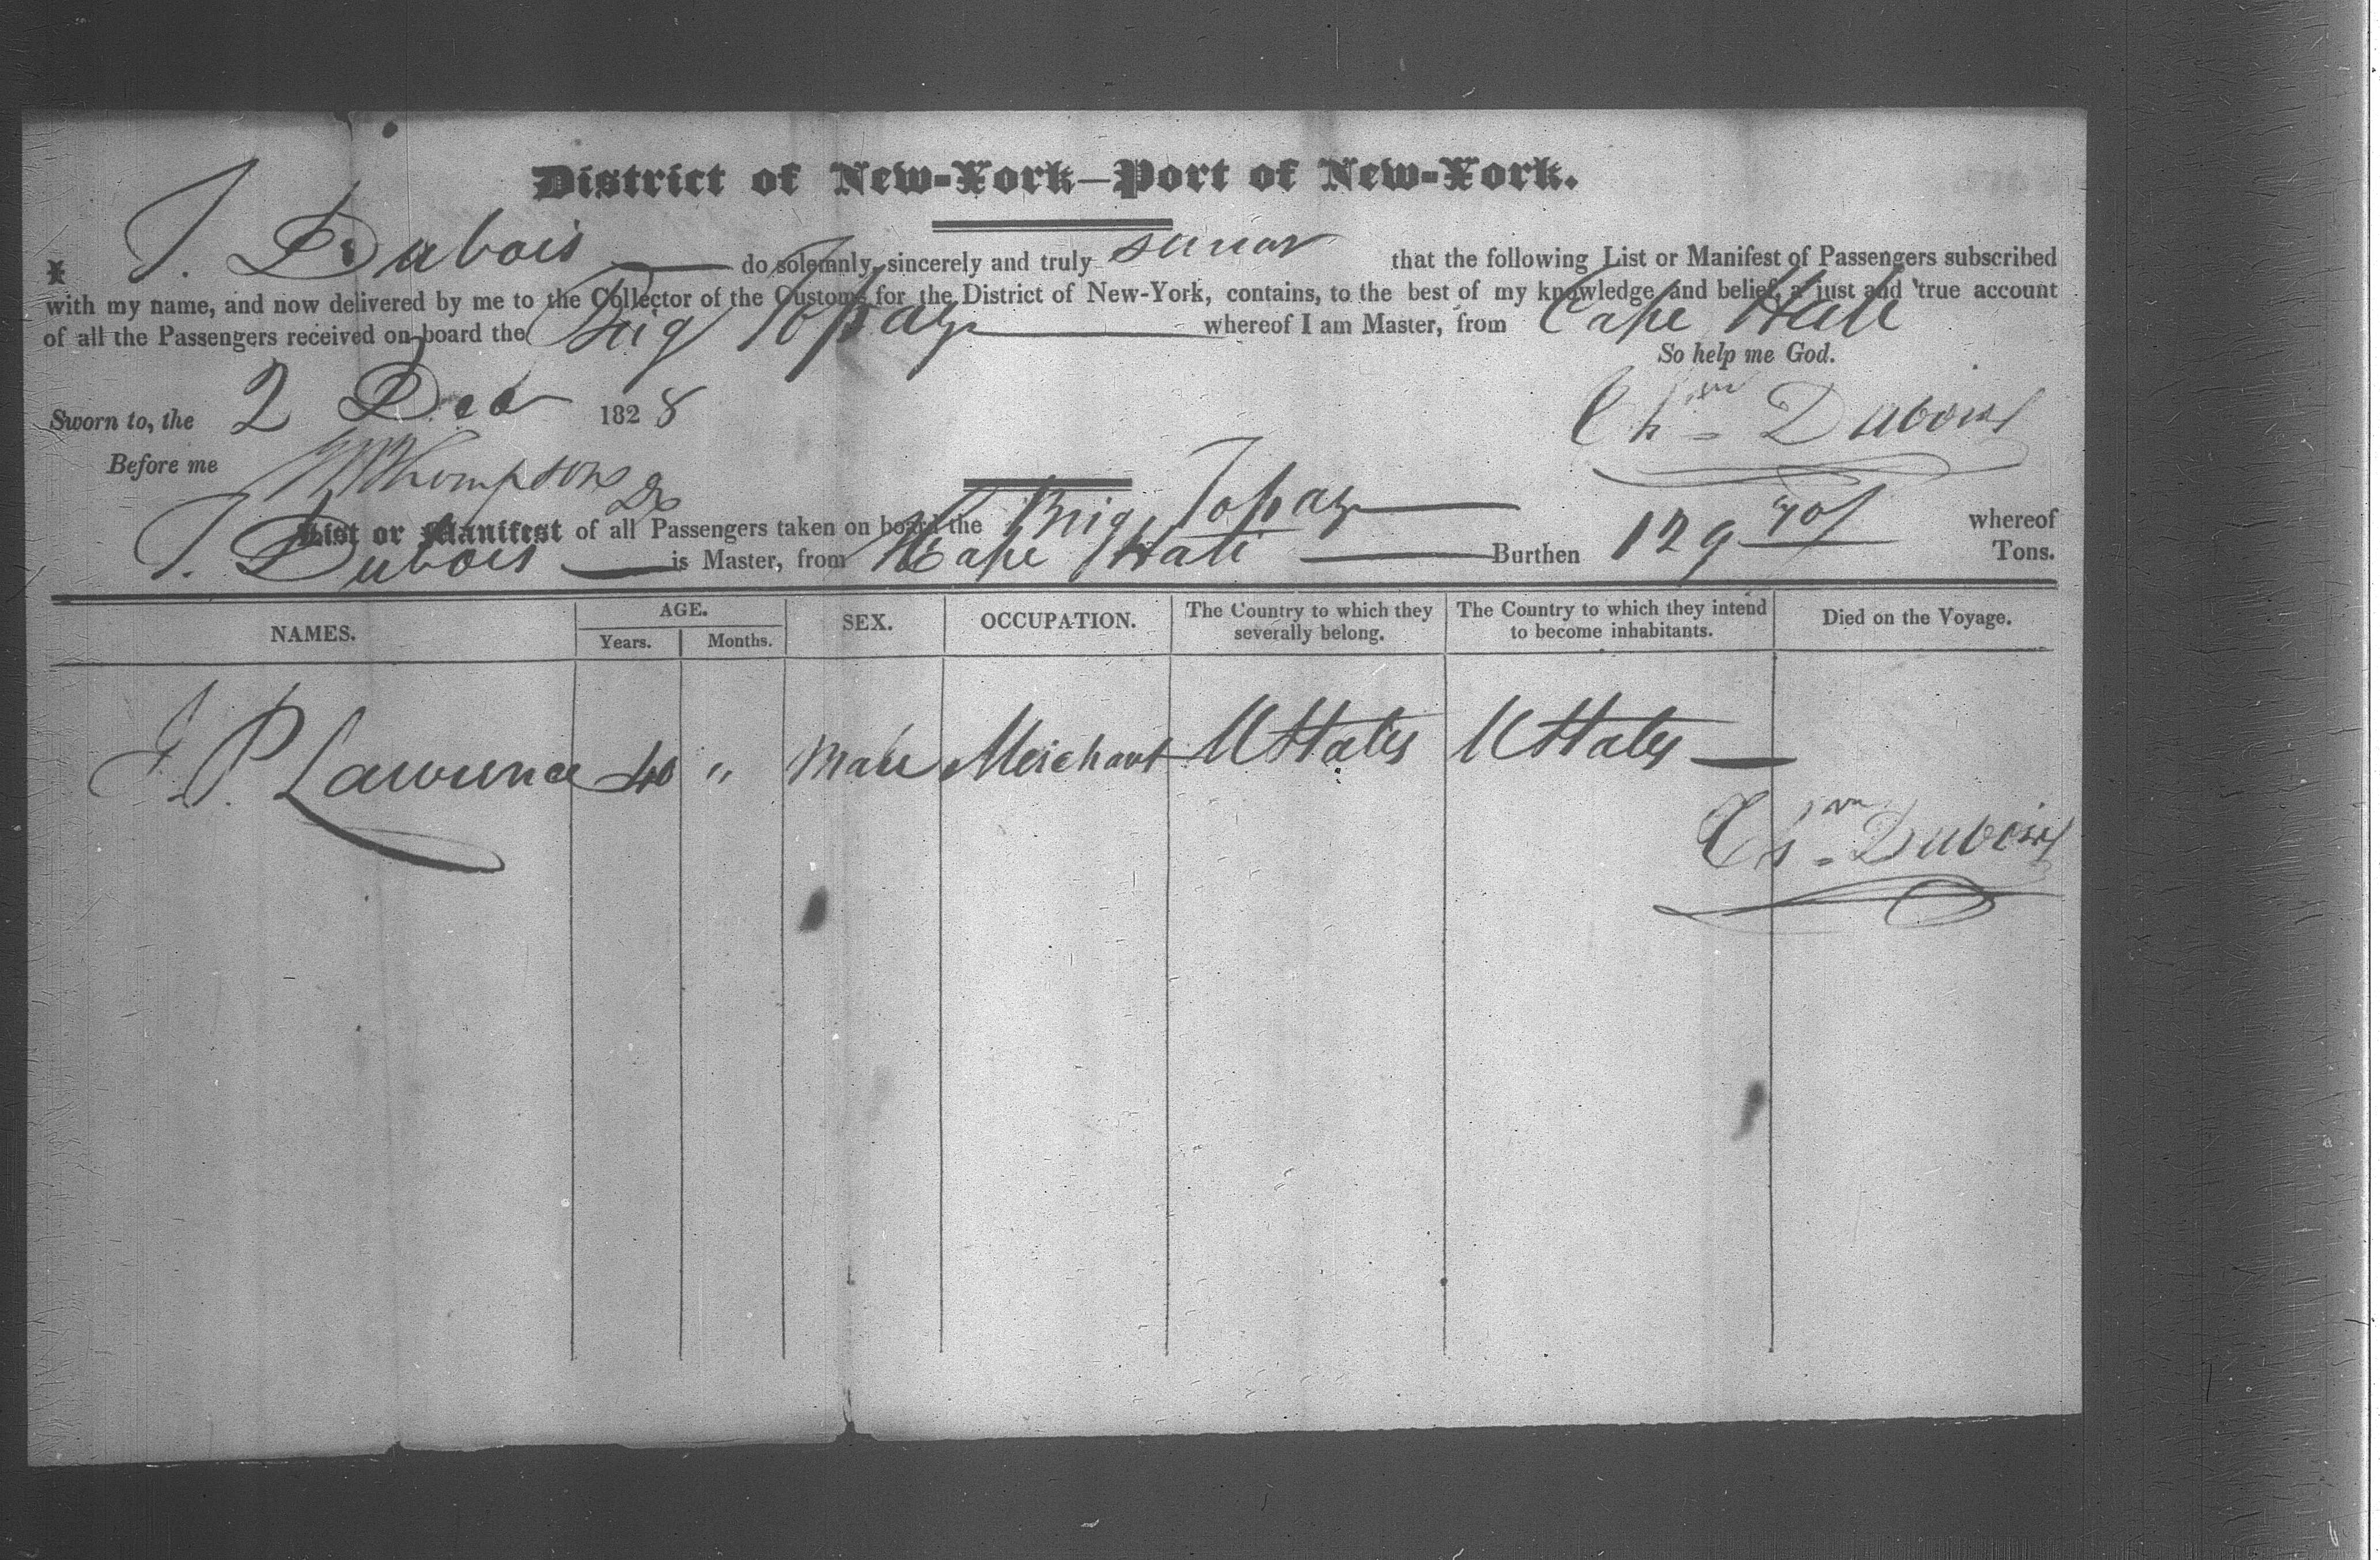 District of New-York—Port of New-York.
I J. Dubois do solemnly, sincerely and truly swear that the following List or Manifest of Passengers subscribed
with my name, and now delivered by me to the Collector of the Customs for the District of New-York, contains, to the best of my knowledge and belief, a just and true account
of all the Passengers received on board the Brig Topaz whereof I am Master, from Cape Hati
So help me God.
Sworn to, the 2 Dec 1828
Chm Dubois
Before me Thompson
List or Manifest of all Passengers taken on board the Brig Topaz whereof
J. Dubois is Master, from Cape Hati Burthen 129 Tons.
NAMES. AGE. SEX. OCCUPATION. The Country to which they severally belong. The Country to which they intend to become inhabitants. Died on the Voyage.
Years. Months.
J. P. Lawrence 40 " Male Merchant U States U States —
Chm Dubois